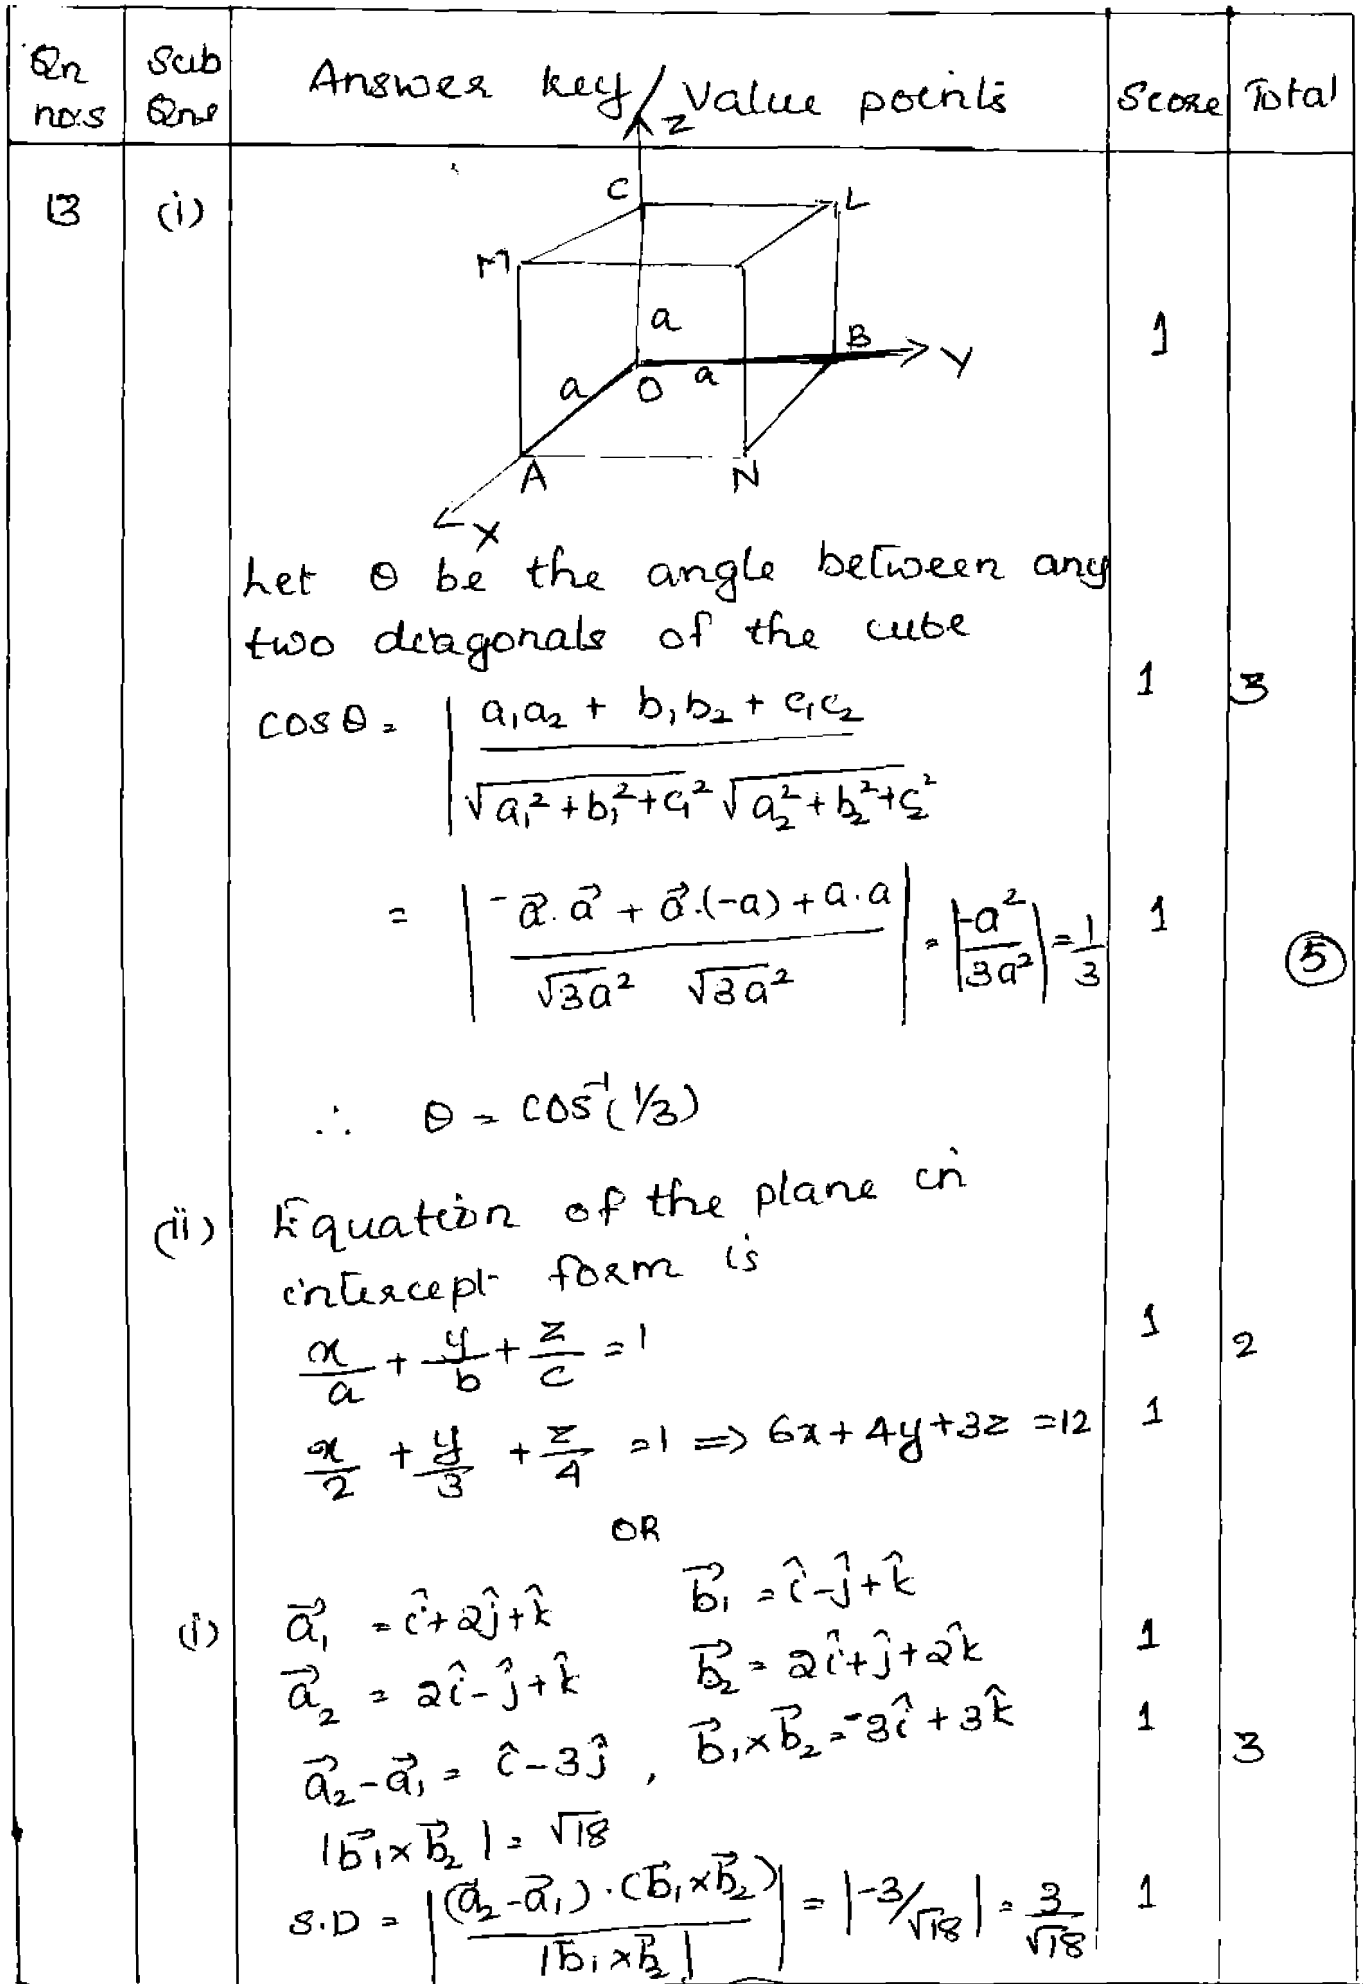 Qn Sub Answer key / Value points Score Total
nos Qns
Z
13 (i)
C L
M
a 1
B
Y
a O a
A N
X
Let θ be the angle between any
two diagonals of the cube
cosθ = | a₁a₂ + b₁b₂ + c₁c₂ / √a₁²+b₁²+c₁² √a₂²+b₂²+c₂² 1 3
= | -a⃗.a⃗ + a⃗.(-a) + a.a / √3a² √3a² | = | -a² / 3a² | = 1/3 1
5
∴ θ = cos⁻¹(1/3)
(ii) Equation of the plane in
intercept form is
x/a + y/b + z/c = 1 1 2
x/2 + y/3 + z/4 = 1 ⇒ 6x + 4y + 3z = 12 1
OR
(i) a⃗₁ = î+2ĵ+k̂ b⃗₁ = î-ĵ+k̂
a⃗₂ = 2î-ĵ+k̂ b⃗₂ = 2î+ĵ+2k̂ 1
a⃗₂-a⃗₁ = î-3ĵ , b⃗₁×b⃗₂ = -3î+3k̂ 1 3
|b⃗₁×b⃗₂| = √18
S.D = | (a⃗₂-a⃗₁).(b⃗₁×b⃗₂) / |b⃗₁×b⃗₂| | = |-3/√18| = 3/√18 1